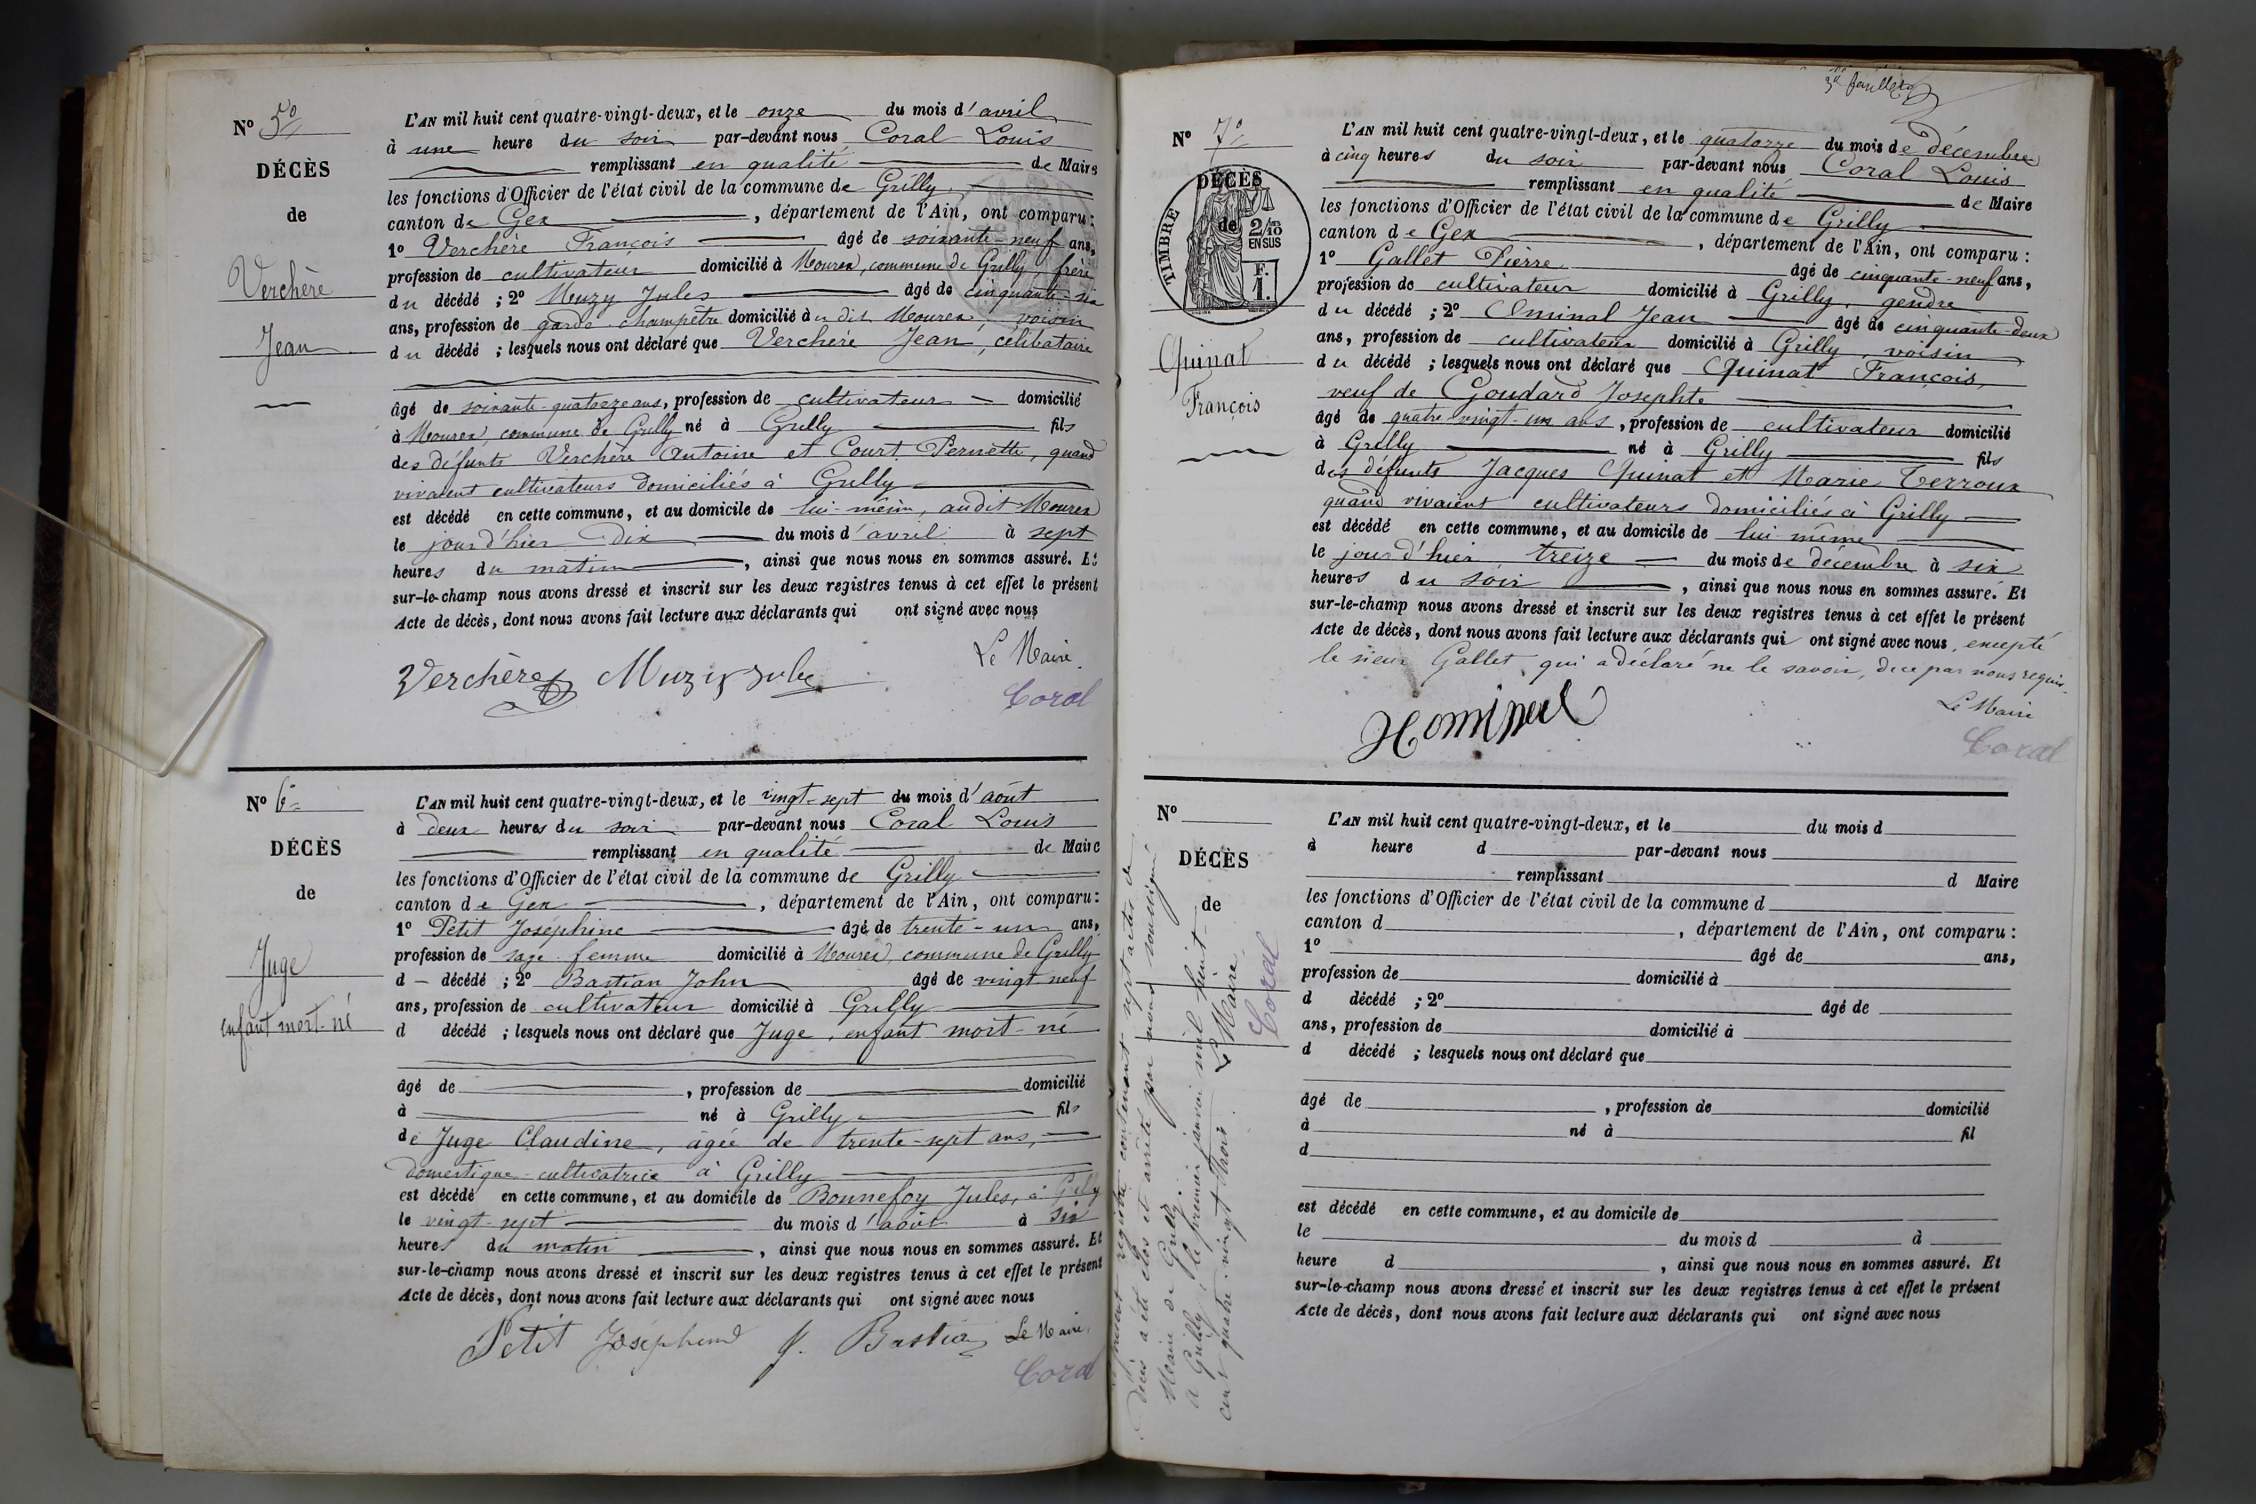 Nº 5º
DÉCÈS
de
Verchère
Jean
L'AN mil huit cent quatre-vingt-deux, et le onze du mois d'avril
à une heure du soir par-devant nous Coral Louis
remplissant en qualité de Maire
les fonctions d'Officier de l'état civil de la commune de Grilly
canton de Gex, département de l'Ain, ont comparu:
1º Verchère François âgé de soixante-neuf ans,
profession de cultivateur domicilié à Mourex, commune de Grilly, frère
du décédé ; 2º Muzy Jules âgé de cinquante-six
ans, profession de garde-champêtre domicilié à u dit Mourex, voisin
du décédé ; lesquels nous ont déclaré que Verchère Jean, célibataire
âgé de soixante-quatorze ans, profession de cultivateur domicilié
à Mourex, commune de Grilly né à Grilly fils
des défunts Verchère Antoine et Court Pernette, quand
vivaient cultivateurs domiciliés à Grilly
est décédé en cette commune, et au domicile de lui-même, audit Mourex
le jour d'hier dix du mois d'avril à sept
heures du matin, ainsi que nous nous en sommes assuré. Et
sur-le-champ nous avons dressé et inscrit sur les deux registres tenus à cet effet le présent
Acte de décès, dont nous avons fait lecture aux déclarants qui ont signé avec nous
Le Maire.
Verchère Muzy Jules
Coral
Nº 6º
DÉCÈS
de
Juge
enfant mort-né
L'AN mil huit cent quatre-vingt-deux, et le vingt-sept du mois d'août
à deux heures du soir par-devant nous Coral Louis
remplissant en qualité de Maire
les fonctions d'Officier de l'état civil de la commune de Grilly
canton de Gex, département de l'Ain, ont comparu:
1º Petit Joséphine âgé de trente-un ans,
profession de sage-femme domicilié à Mourex, commune de Grilly
d - décédé ; 2º Bastian John âgé de vingt-neuf
ans, profession de cultivateur domicilié à Grilly
d décédé ; lesquels nous ont déclaré que Juge, enfant mort-né
âgé de, profession de domicilié
à né à Grilly fils
de Juge Claudine, âgée de trente-sept ans,
domestique-cultivatrice à Grilly
est décédé en cette commune, et au domicile de Bonnefoy Jules, à Grilly
le vingt-sept du mois d'août à six
heures du matin, ainsi que nous nous en sommes assuré. Et
sur-le-champ nous avons dressé et inscrit sur les deux registres tenus à cet effet le présent
Acte de décès, dont nous avons fait lecture aux déclarants qui ont signé avec nous
Petit Joséphine J. Bastian Le Maire,
Coral
3e feuillet
Nº 7º
DÉCÈS
de
TIMBRE
2/10
EN SUS
F.
1.
Quinat
François
L'AN mil huit cent quatre-vingt-deux, et le quatorze du mois de décembre
à cinq heures du soir par-devant nous Coral Louis
remplissant en qualité de Maire
les fonctions d'Officier de l'état civil de la commune de Grilly
canton de Gex, département de l'Ain, ont comparu :
1º Gallet Pierre âgé de cinquante-neuf ans,
profession de cultivateur domicilié à Grilly, gendre
du décédé ; 2º Ominal Jean âgé de cinquante-deux
ans, profession de cultivateur domicilié à Grilly, voisin
du décédé ; lesquels nous ont déclaré que Quinat François,
veuf de Goudard Josephte
âgé de quatre-vingt-un ans, profession de cultivateur domicilié
à Grilly né à Grilly fils
des défunts Jacques Quinat et Marie Terroux
quand vivaient cultivateurs domiciliés à Grilly
est décédé en cette commune, et au domicile de lui-même
le jour d'hier treize du mois de décembre à six
heures du soir, ainsi que nous nous en sommes assuré. Et
sur-le-champ nous avons dressé et inscrit sur les deux registres tenus à cet effet le présent
Acte de décès, dont nous avons fait lecture aux déclarants qui ont signé avec nous, excepté
le sieur Gallet qui a déclaré ne le savoir, de ce par nous requis.
Le Maire
Hominal
Coral
Nº
DÉCÈS
de
L'AN mil huit cent quatre-vingt-deux, et le du mois d
à heure d par-devant nous
remplissant d Maire
les fonctions d'Officier de l'état civil de la commune d
canton d, département de l'Ain, ont comparu :
1º âgé de ans,
profession de domicilié à
d décédé ; 2º âgé de
ans, profession de domicilié à
d décédé ; lesquels nous ont déclaré que
âgé de, profession de domicilié
à né à fil
d
est décédé en cette commune, et au domicile de
le du mois d à
heure d, ainsi que nous nous en sommes assuré. Et
sur-le-champ nous avons dressé et inscrit sur les deux registres tenus à cet effet le présent
Acte de décès, dont nous avons fait lecture aux déclarants qui ont signé avec nous
présent registre contenant sept actes de
décès a été clos et arrêté par nous soussigné
Maire de Grilly.
A Grilly, le premier janvier mil huit
cent quatre-vingt-trois. Le Maire
Coral